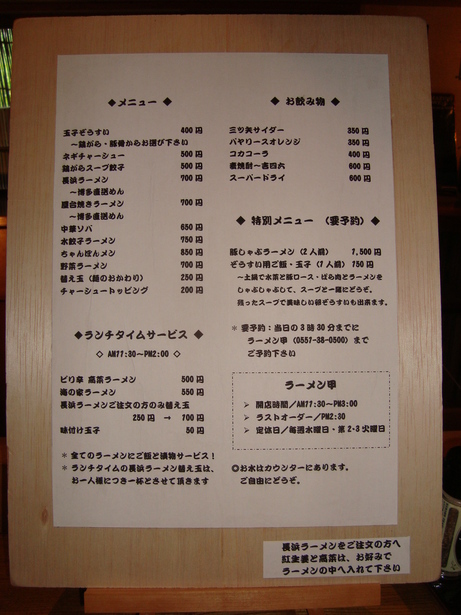 ◆ メニュー ◆
玉子ぞうすい 400円
～鶏がら・豚骨からお選び下さい
ネギチャーシュー 500円
鶏がらスープ餃子 500円
長浜ラーメン 700円
～博多直送めん
屋台焼きラーメン 700円
～博多直送めん
中華ソバ 650円
水餃子ラーメン 750円
ちゃんぽんメン 850円
野菜ラーメン 700円
替え玉（麺のおかわり） 250円
チャーシュートッピング 200円
◆ランチタイムサービス ◆
◇ AM11:30～PM2:00 ◇
ピリ辛 高菜ラーメン 500円
海の家ラーメン 550円
長浜ラーメンご注文の方のみ替え玉
250円 → 100円
味付け玉子 50円
＊ 全てのラーメンにご飯と漬物サービス！
＊ ランチタイムの長浜ラーメン替え玉は、
お一人様につき一杯とさせて頂きます
◆ お飲み物 ◆
三ツ矢サイダー 350円
バヤリースオレンジ 350円
コカコーラ 400円
麦焼酎～吉四六 400円
スーパードライ 600円
◆ 特別メニュー （要予約） ◆
豚しゃぶラーメン（2人前） 1,500円
ぞうすい用ご飯・玉子（1人前） 150円
～土鍋で水菜と豚ロース・ばら肉とラーメンを
しゃぶしゃぶして、スープと一緒にどうぞ。
残ったスープで美味しい卵ぞうすいも出来ます。
＊ 要予約：当日の3時30分までに
ラーメン甲（0557-38-0500）まで
ご予約下さい
ラーメン甲
➢ 開店時間／AM11:30～PM3:00
➢ ラストオーダー／PM2:30
➢ 定休日／毎週水曜日・第2・3火曜日
◎お水はカウンターにあります。
ご自由にどうぞ。
長浜ラーメンをご注文の方へ
紅生姜と高菜は、お好みで
ラーメンの中へ入れて下さい